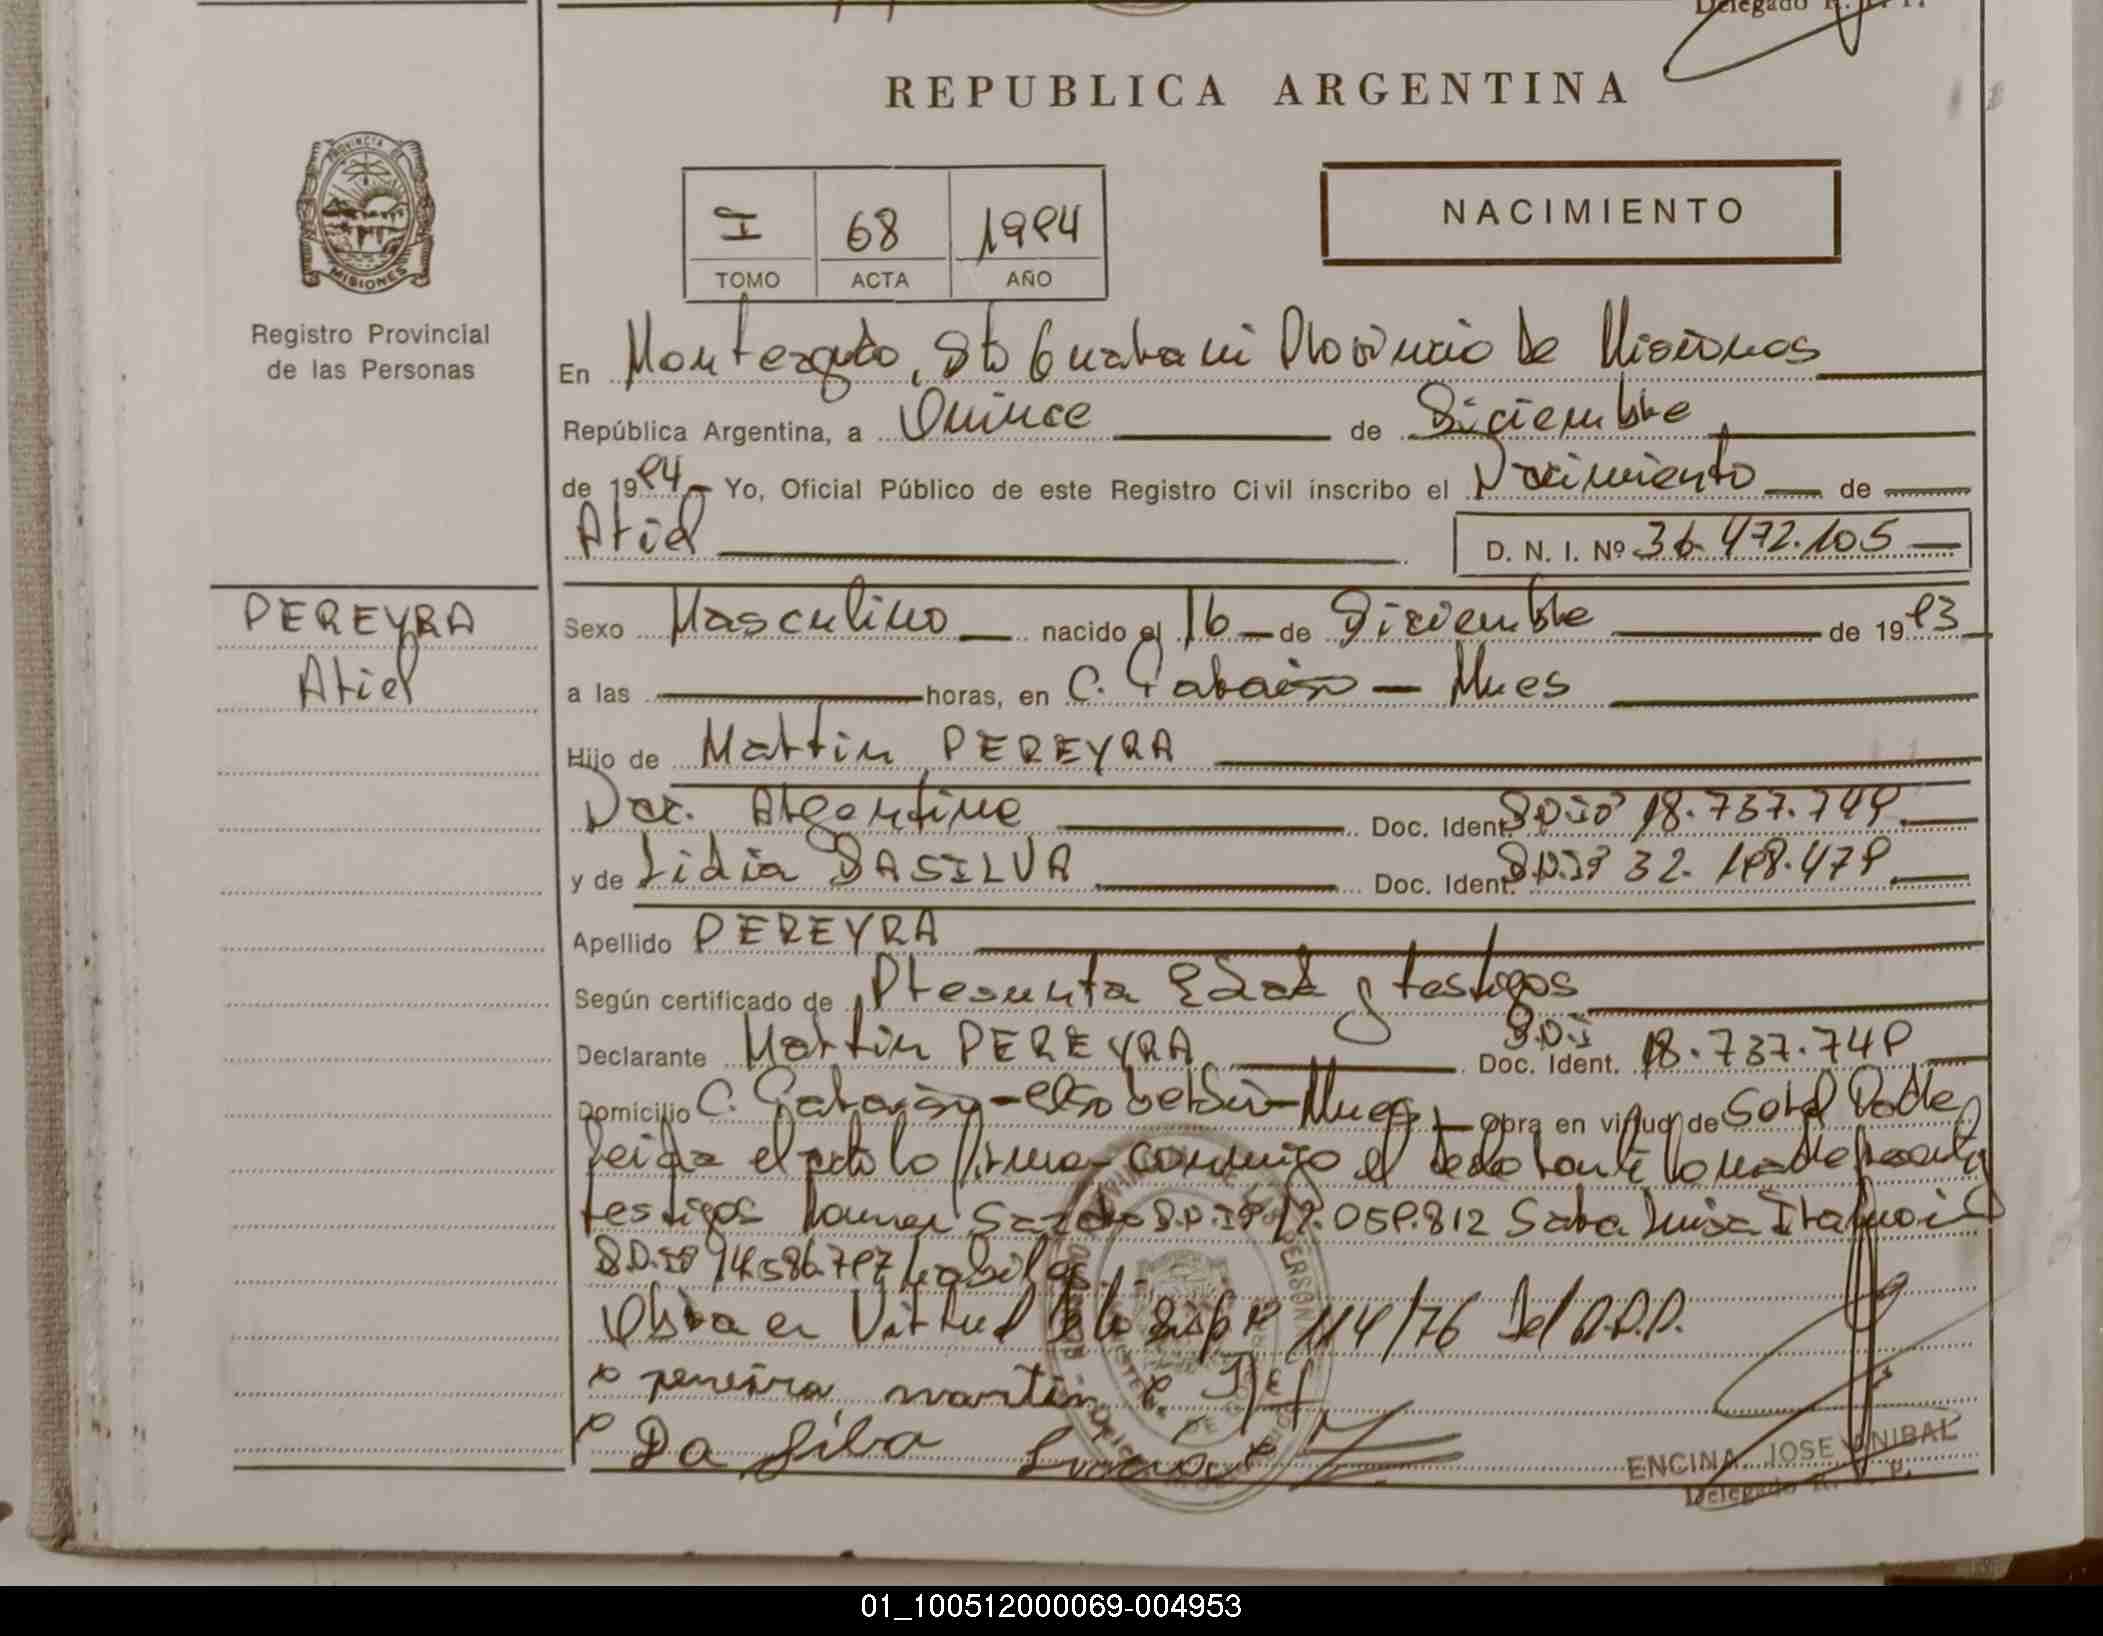 Delegado R. P. P.
REPUBLICA ARGENTINA
PROVINCIA DE
MISIONES
Registro Provincial
de las Personas
I 68 1994
TOMO ACTA AÑO
NACIMIENTO
En Monteagudo, Dto Guarani Provincia De Misiones
República Argentina, a Quince de Diciembre
de 1994 Yo, Oficial Público de este Registro Civil inscribo el Nacimiento de
Ariel D. N. I. Nº 36.472.105
PEREYRA
Ariel
Sexo Masculino nacido el 16 de Diciembre de 1993
a las horas, en C. Paraiso - Mnes
Hijo de Martin PEREYRA
Nac. Argentino Doc. Ident. D.N.I Nº 18.737.749
y de Lidia DASILVA Doc. Ident. D.N.I Nº 32.198.479
Apellido PEREYRA
Según certificado de Presunta Edad y testigos
Declarante Martin PEREYRA Doc. Ident. D.N.I 18.737.749
Domicilio C. Paraiso - Mnes obra en virtud de Ser el Padre
Leida el acta la firma conmigo el declarante la madre
testigos D.N.I Nº .059.812 Sara Luisa
D.N.I Nº 14.586.797 habiles.
Obra en Virtud De la Disp Nº 114/76 Del R.P.P.
x pereira martin
x Da silva
ENCINA JOSE ANIBAL
Delegado R. P. P.
01_100512000069-004953